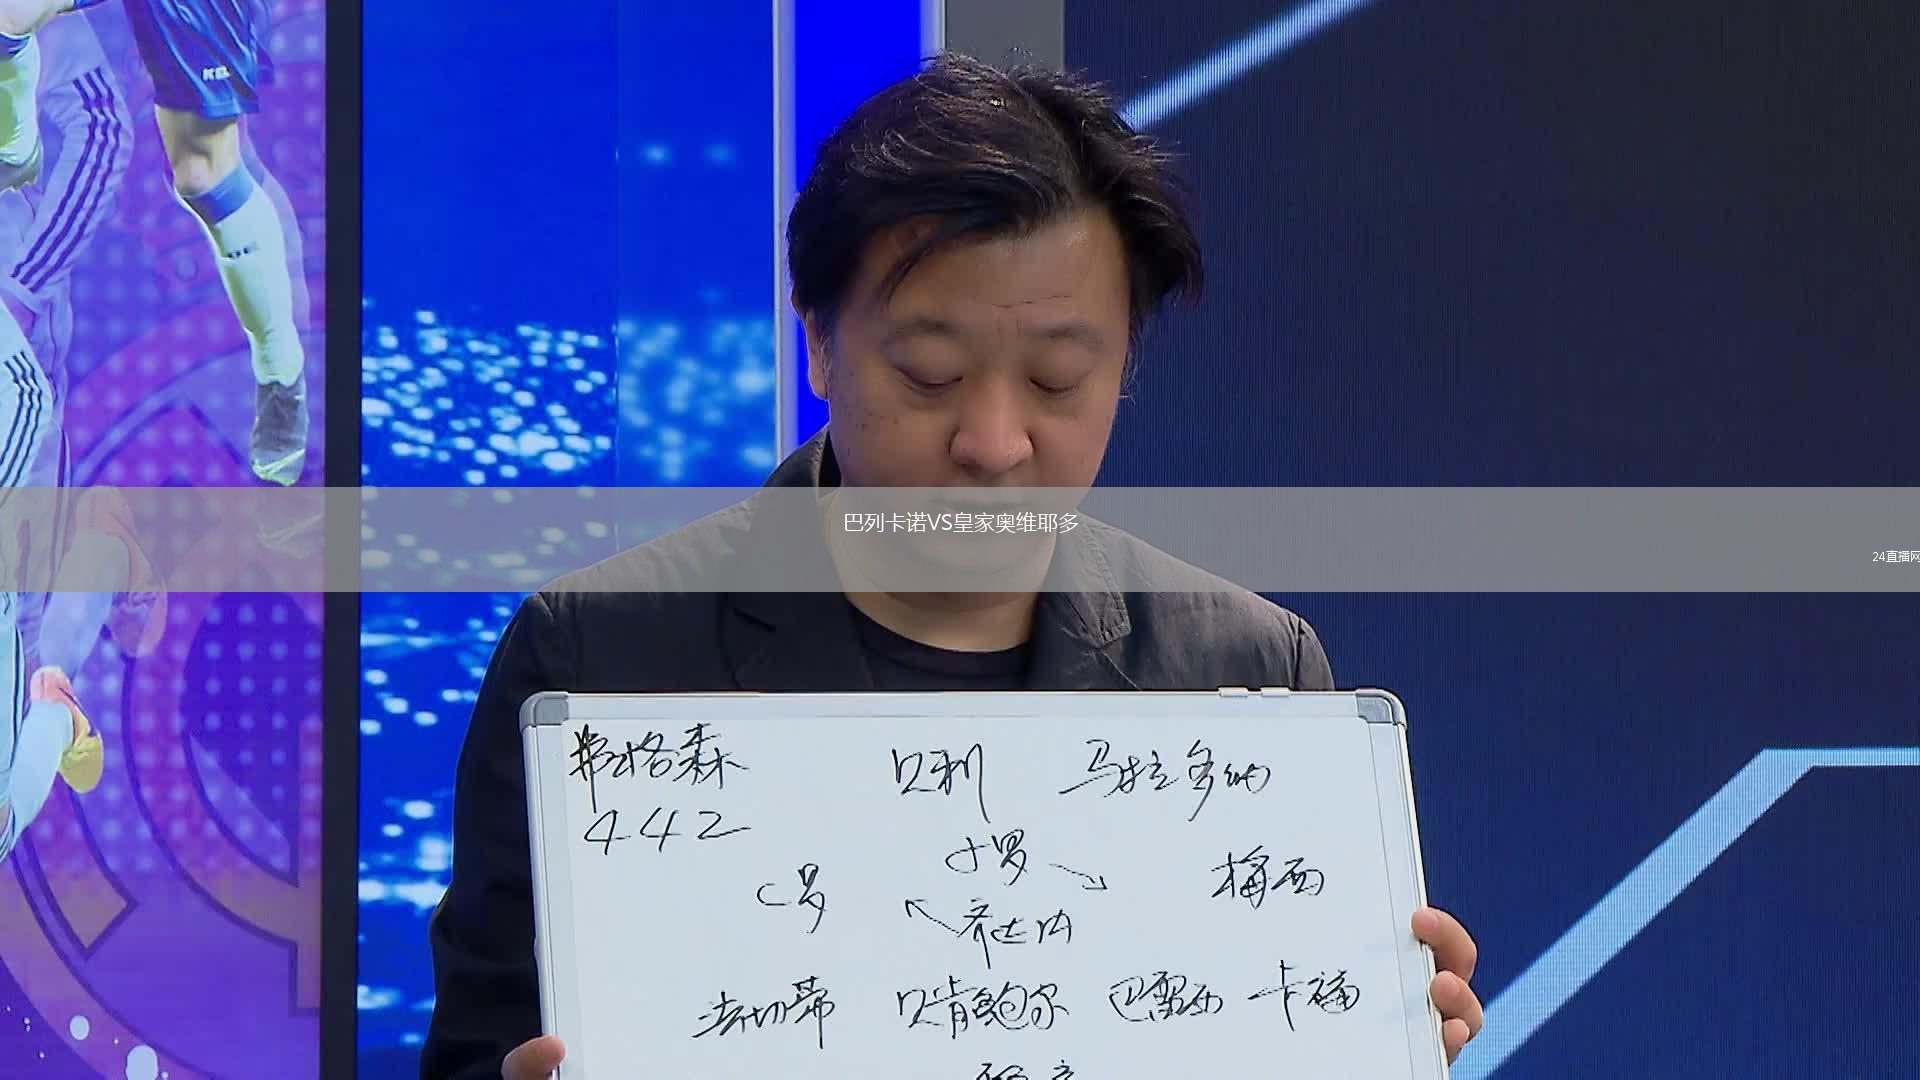 巴列卡诺VS皇家奥维耶多
24直播网
弗格森 贝利 马拉多纳
442
小罗
C罗 梅西
齐达内
法切蒂 贝肯鲍尔 巴雷西 卡福